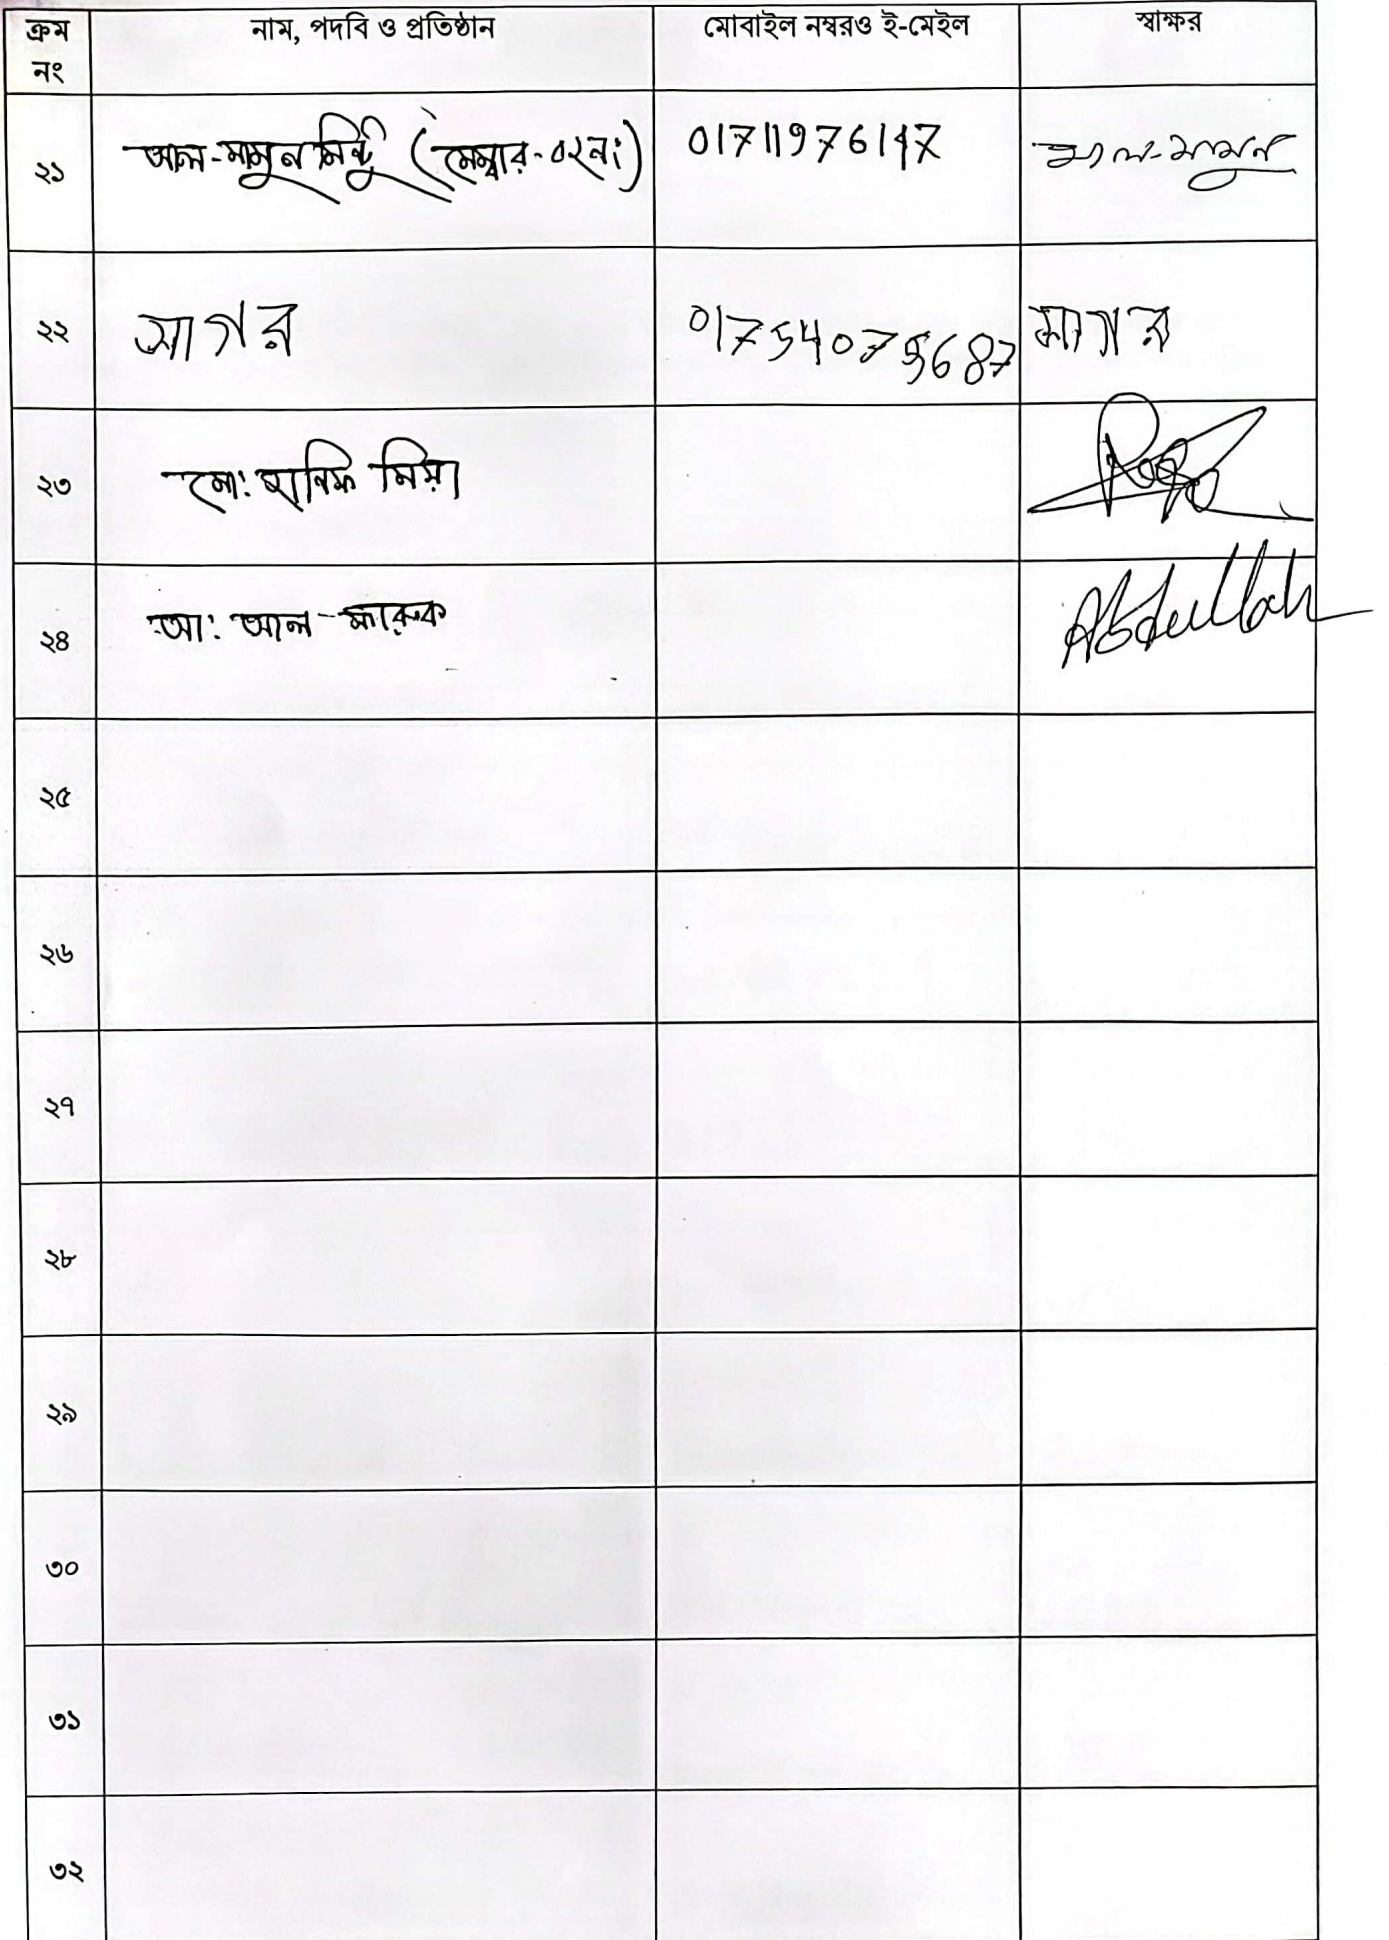 ক্রম নং নাম, পদবি ও প্রতিষ্ঠান মোবাইল নম্বরও ই-মেইল স্বাক্ষর
২১ আল-মামুন মিন্টু (মেম্বার-০২নং) 01711976147 আল-মামুন
২২ সাগর 01754075687 সাগর
২৩ মো: হানিফ মিয়া
২৪ আ: আল-ফারুক Abdullah
২৫
২৬
২৭
২৮
২৯
৩০
৩১
৩২